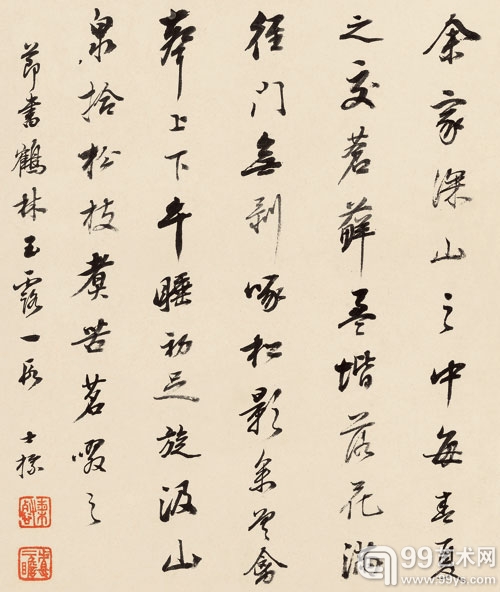 余家深山之中每春夏
之交蒼蘚盈堦落花滿
徑門無剝啄松影參差禽
聲上下午睡初足旋汲山
泉拾松枝煮苦茗啜之
節書鶴林玉露一段 士標
99艺术网
www.99ys.com